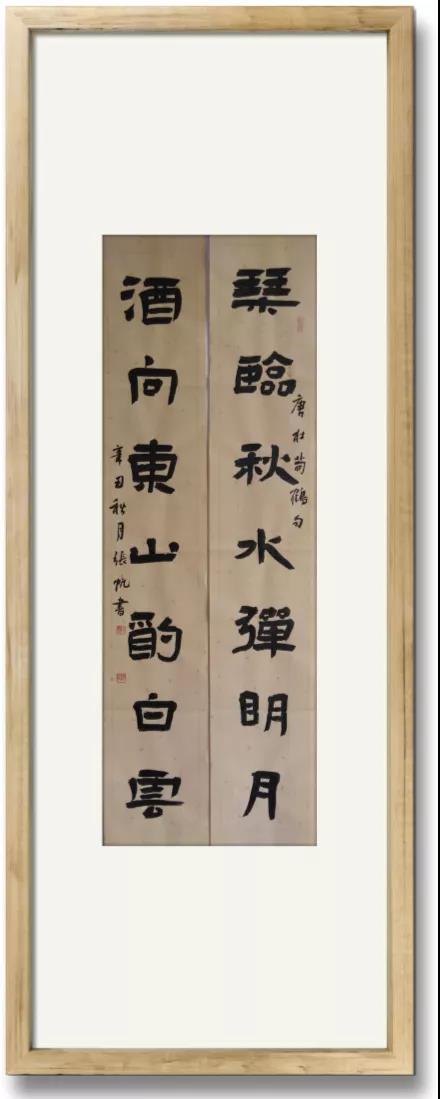 琹臨秋水彈明月
唐杜荀鶴句
酒向東山酌白雲
辛丑秋月張帆書